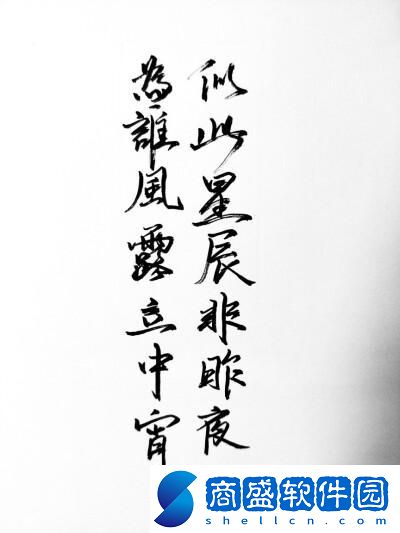 似此星辰非昨夜
為誰風露立中宵
商盛软件园
shellcn.com